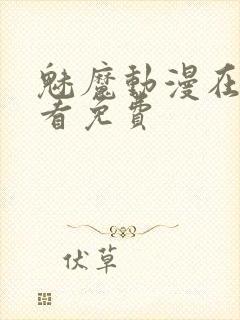 魅魔動漫在
看免費
伏草